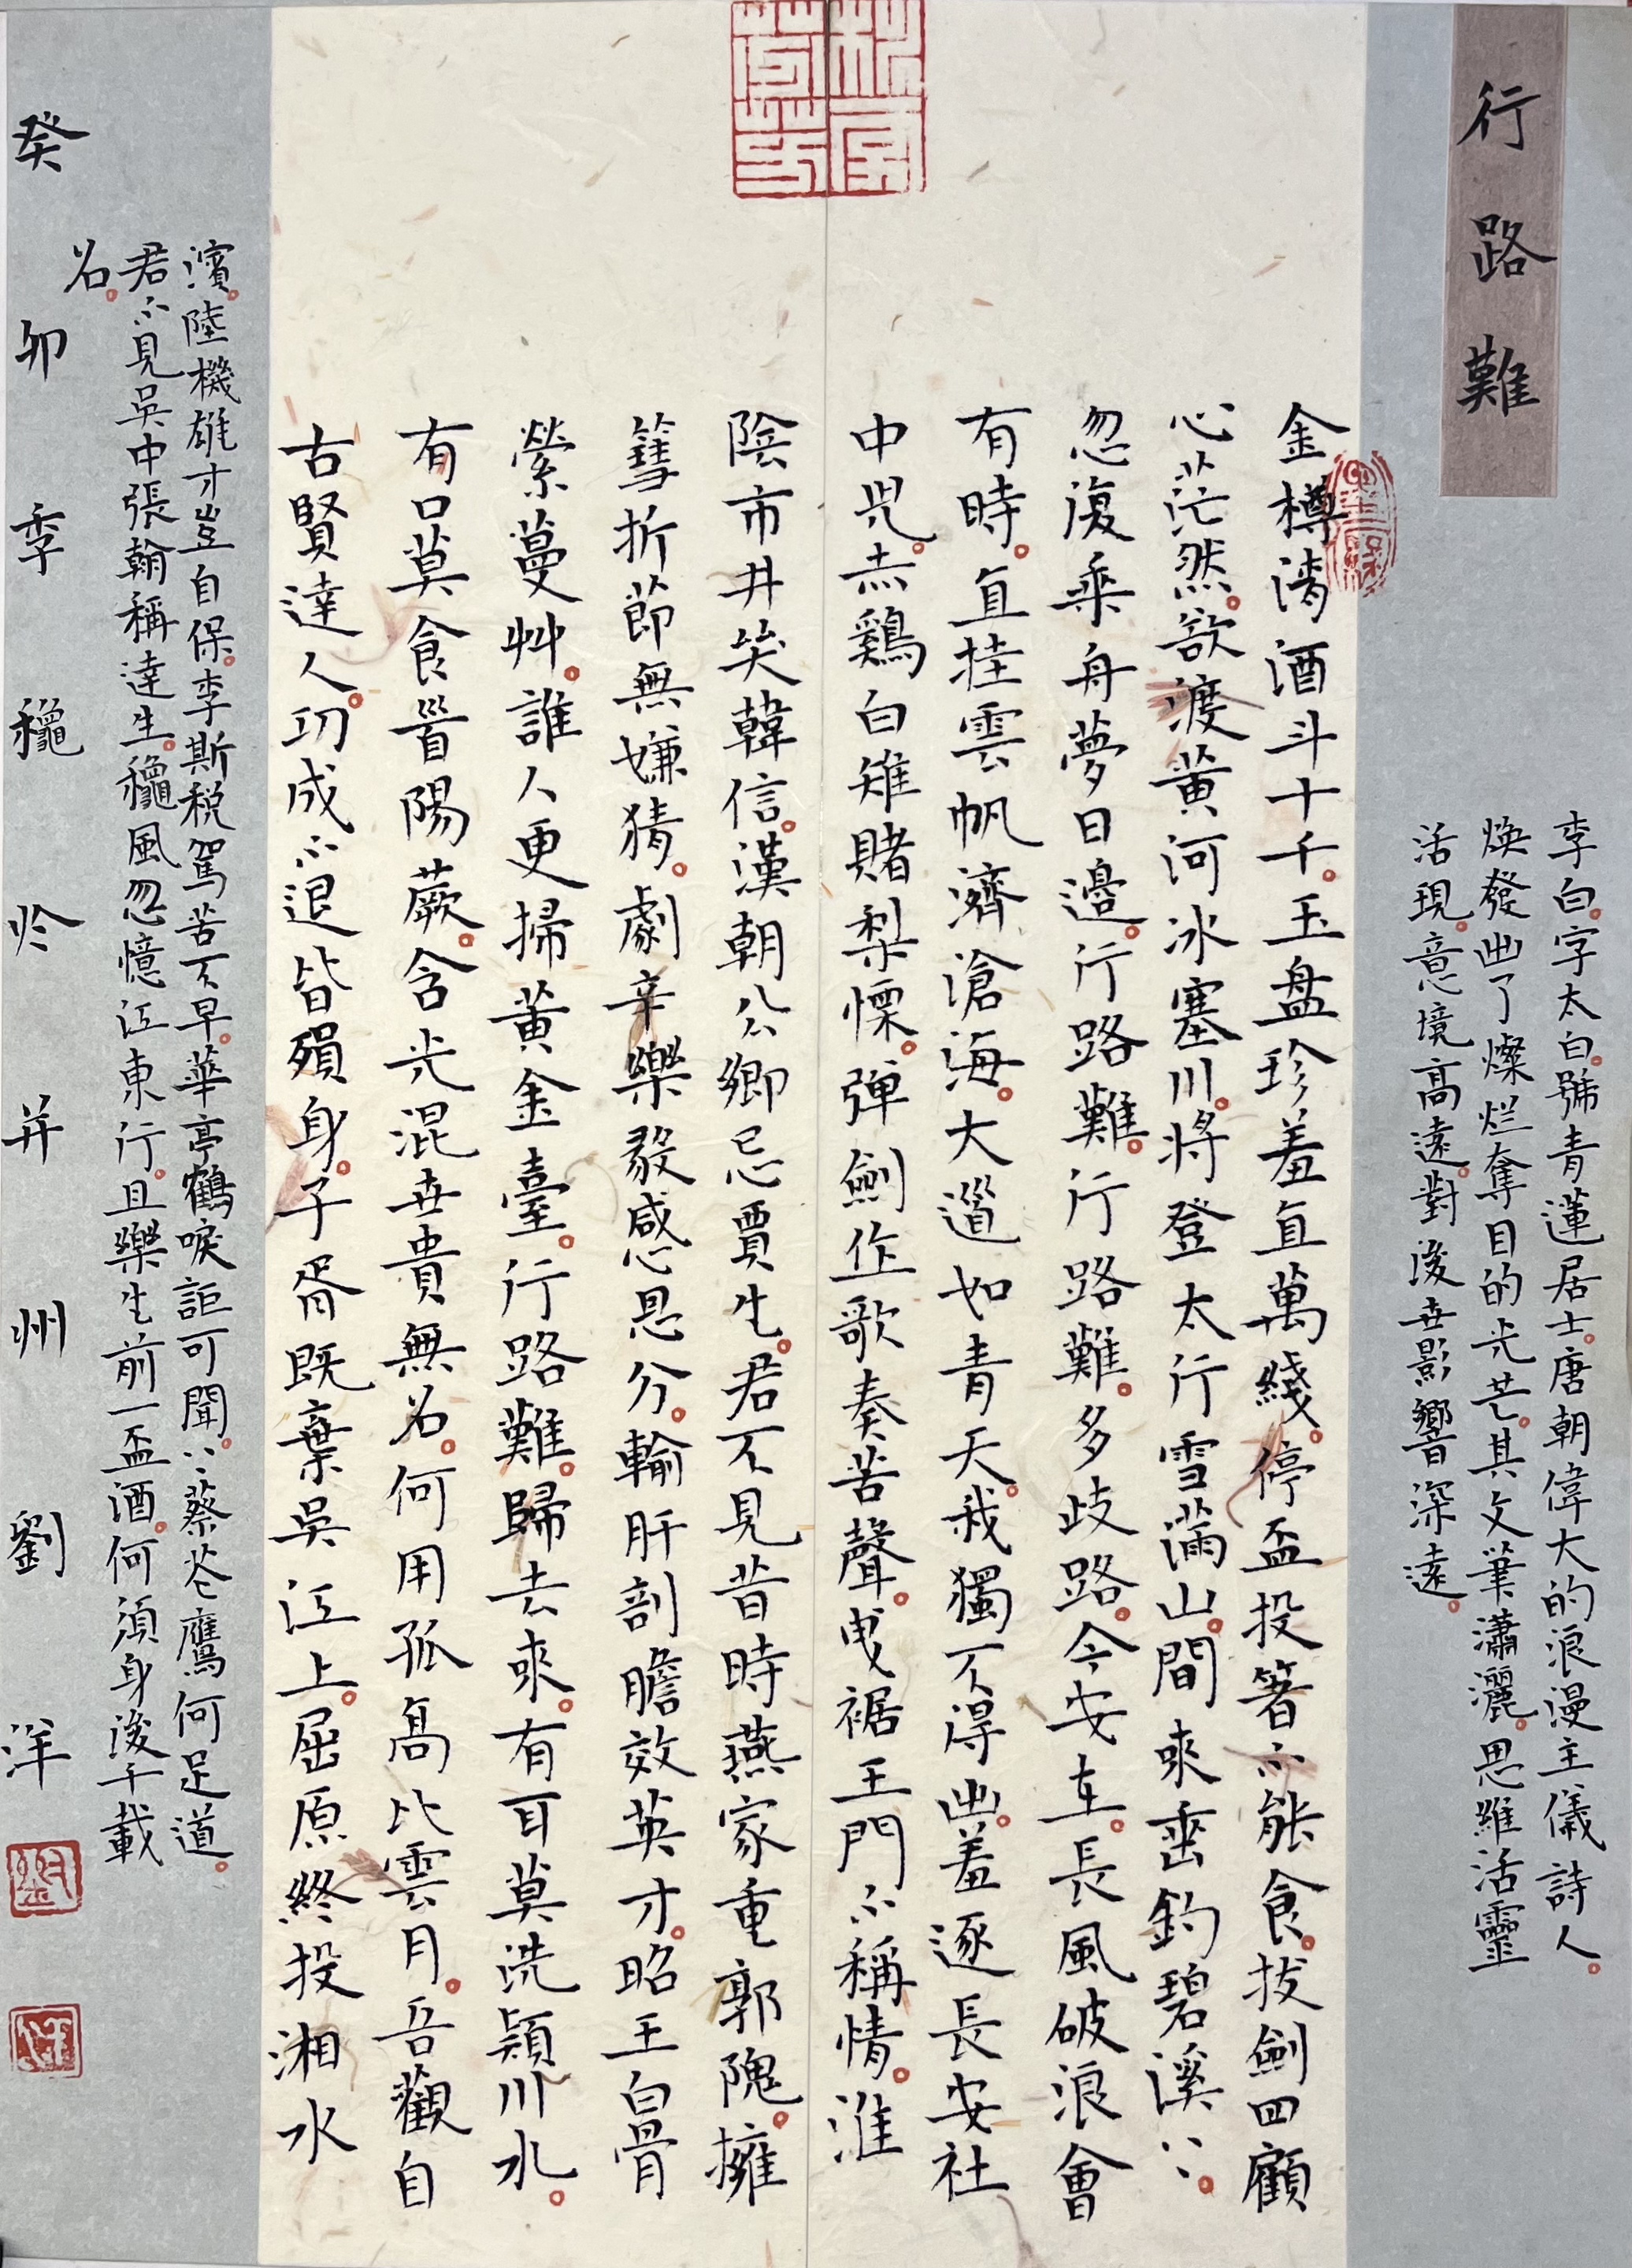 行路難
李白字太白號青蓮居士唐朝偉大的浪漫主儀詩人
煥發出了燦烂奪目的光芒其文筆瀟灑思維活靈
活現意境高遠對後世影響深遠
金樽清酒斗十千玉盘珍羞直萬綫停盃投箸不能食拔劍四顧
心茫然欲渡黃河冰塞川將登太行雪滿山間來垂釣碧溪〻
忽復乘舟夢日邊行路難行路難多歧路今安在長風破浪會
有時直挂雲帆濟滄海大道如青天我獨不得出羞逐長安社
中兒赤鷄白雉賭梨慄彈劍作歌奏苦聲曳裾王門不稱情淮
陰市井笑韓信漢朝公卿忌賈生君不見昔時燕家重郭隗擁
篲折節無嫌猜劇辛樂毅感恩分輸肝剖膽效英才昭王白骨
縈蔓艸誰人更掃黃金臺行路難歸去來有耳莫洗潁川水
有口莫食首陽蕨含光混世貴無名何用孤高比雲月吾觀自
古賢達人功成不退皆殞身子胥既棄吳江上屈原終投湘水
濱陸機雄才豈自保李斯稅駕苦不早華亭鶴唳詎可聞〻蔡苍鷹何足道
君不見吳中張翰稱達生龝風忽憶江東行且樂生前一盃酒何須身後千載
名
癸卯季龝於并州劉洋